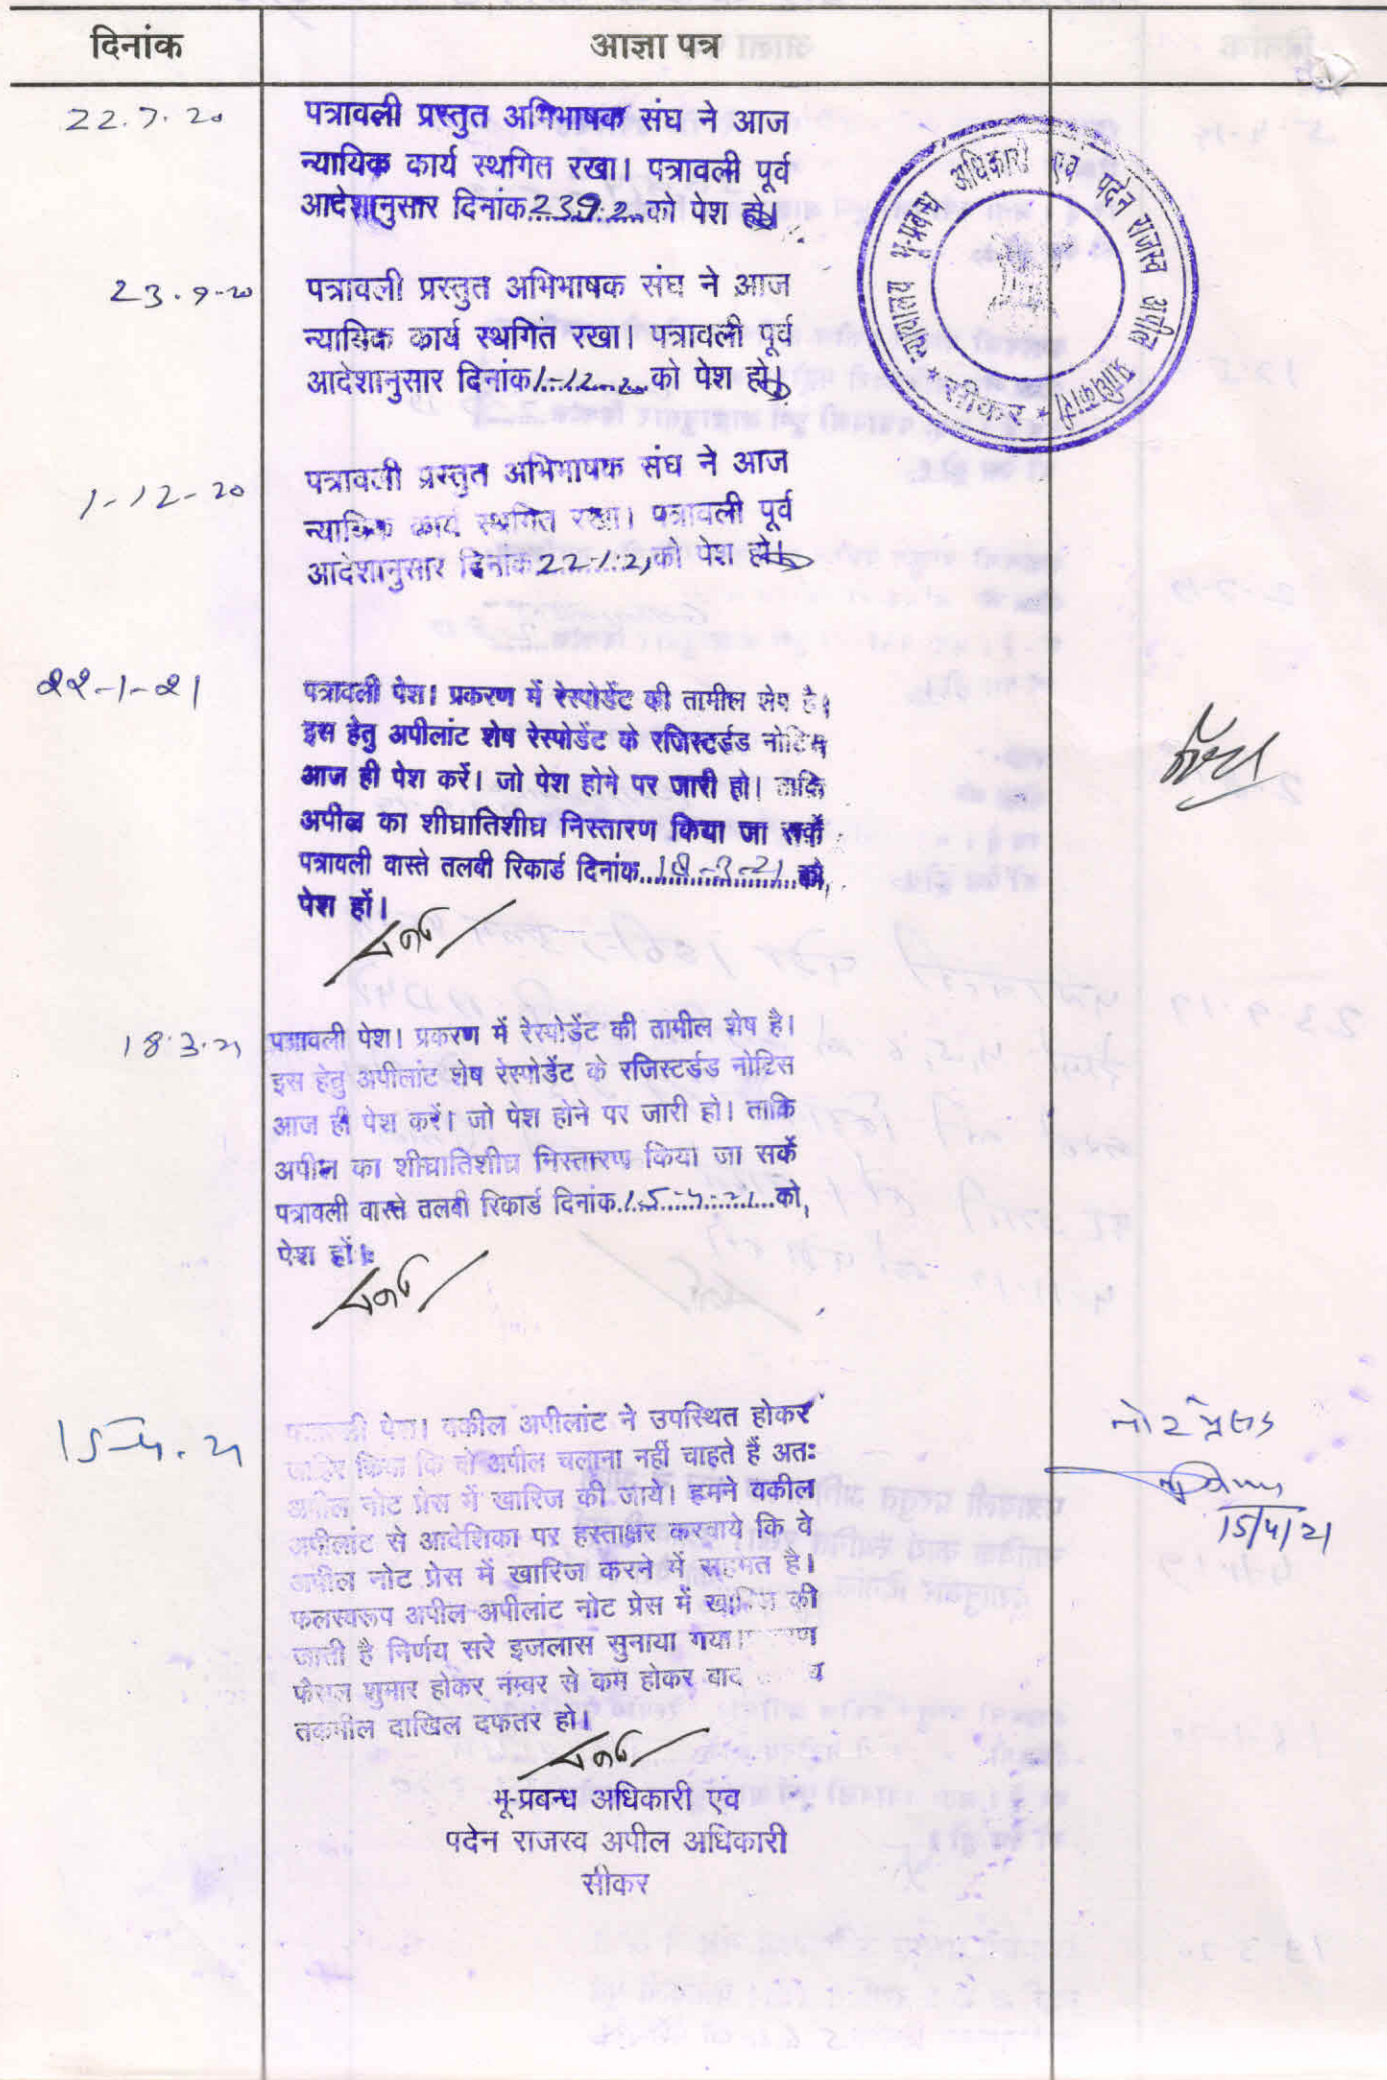 दिनांक
आज्ञा पत्र
22.7.20
पत्रावली प्रस्तुत अभिभाषक संघ ने आज
न्यायिक कार्य स्थगित रखा। पत्रावली पूर्व
आदेशानुसार दिनांक 23.9.20 को पेश हो।
न्यायालय भू-प्रबन्ध अधिकारी एवं पदेन राजस्व अपील प्राधिकारी
* सीकर *
23.9.20
पत्रावली प्रस्तुत अभिभाषक संघ ने आज
न्यायिक कार्य स्थगित रखा। पत्रावली पूर्व
आदेशानुसार दिनांक 1-12-20 को पेश हो।
1-12-20
पत्रावली प्रस्तुत अभिभाषक संघ ने आज
न्यायिक कार्य स्थगित रखा। पत्रावली पूर्व
आदेशानुसार दिनांक 22-1-21 को पेश हो।
22-1-21
पत्रावली पेश। प्रकरण में रेस्पोडेंट की तामील शेष है।
इस हेतु अपीलांट शेष रेस्पोडेंट के रजिस्टर्डड नोटिस
आज ही पेश करें। जो पेश होने पर जारी हो। ताकि
अपील का शीघ्रातिशीघ्र निस्तारण किया जा सकें
पत्रावली वास्ते तलबी रिकार्ड दिनांक 18-3-21 को,
पेश हों।
18.3.21
पत्रावली पेश। प्रकरण में रेस्पोडेंट की तामील शेष है।
इस हेतु अपीलांट शेष रेस्पोडेंट के रजिस्टर्डड नोटिस
आज ही पेश करें। जो पेश होने पर जारी हो। ताकि
अपील का शीघ्रातिशीघ्र निस्तारण किया जा सकें
पत्रावली वास्ते तलबी रिकार्ड दिनांक 15-4-21 को,
पेश हों।
15-4-21
पत्रावली पेश। वकील अपीलांट ने उपस्थित होकर
जाहिर किया कि वो अपील चलाना नहीं चाहते हैं अतः
अपील नोट प्रेस में खारिज की जाये। हमने वकील
अपीलांट से आदेशिका पर हस्ताक्षर करवाये कि वे
अपील नोट प्रेस में खारिज करने में सहमत है।
फलस्वरूप अपील-अपीलांट नोट प्रेस में खारिज की
जाती है निर्णय सरे इजलास सुनाया गया।
फैसल शुमार होकर नम्बर से कम होकर बाद
तकमील दाखिल दफतर हो।
नोट प्रेस
15/4/21
भू-प्रबन्ध अधिकारी एंव
पदेन राजस्व अपील अधिकारी
सीकर